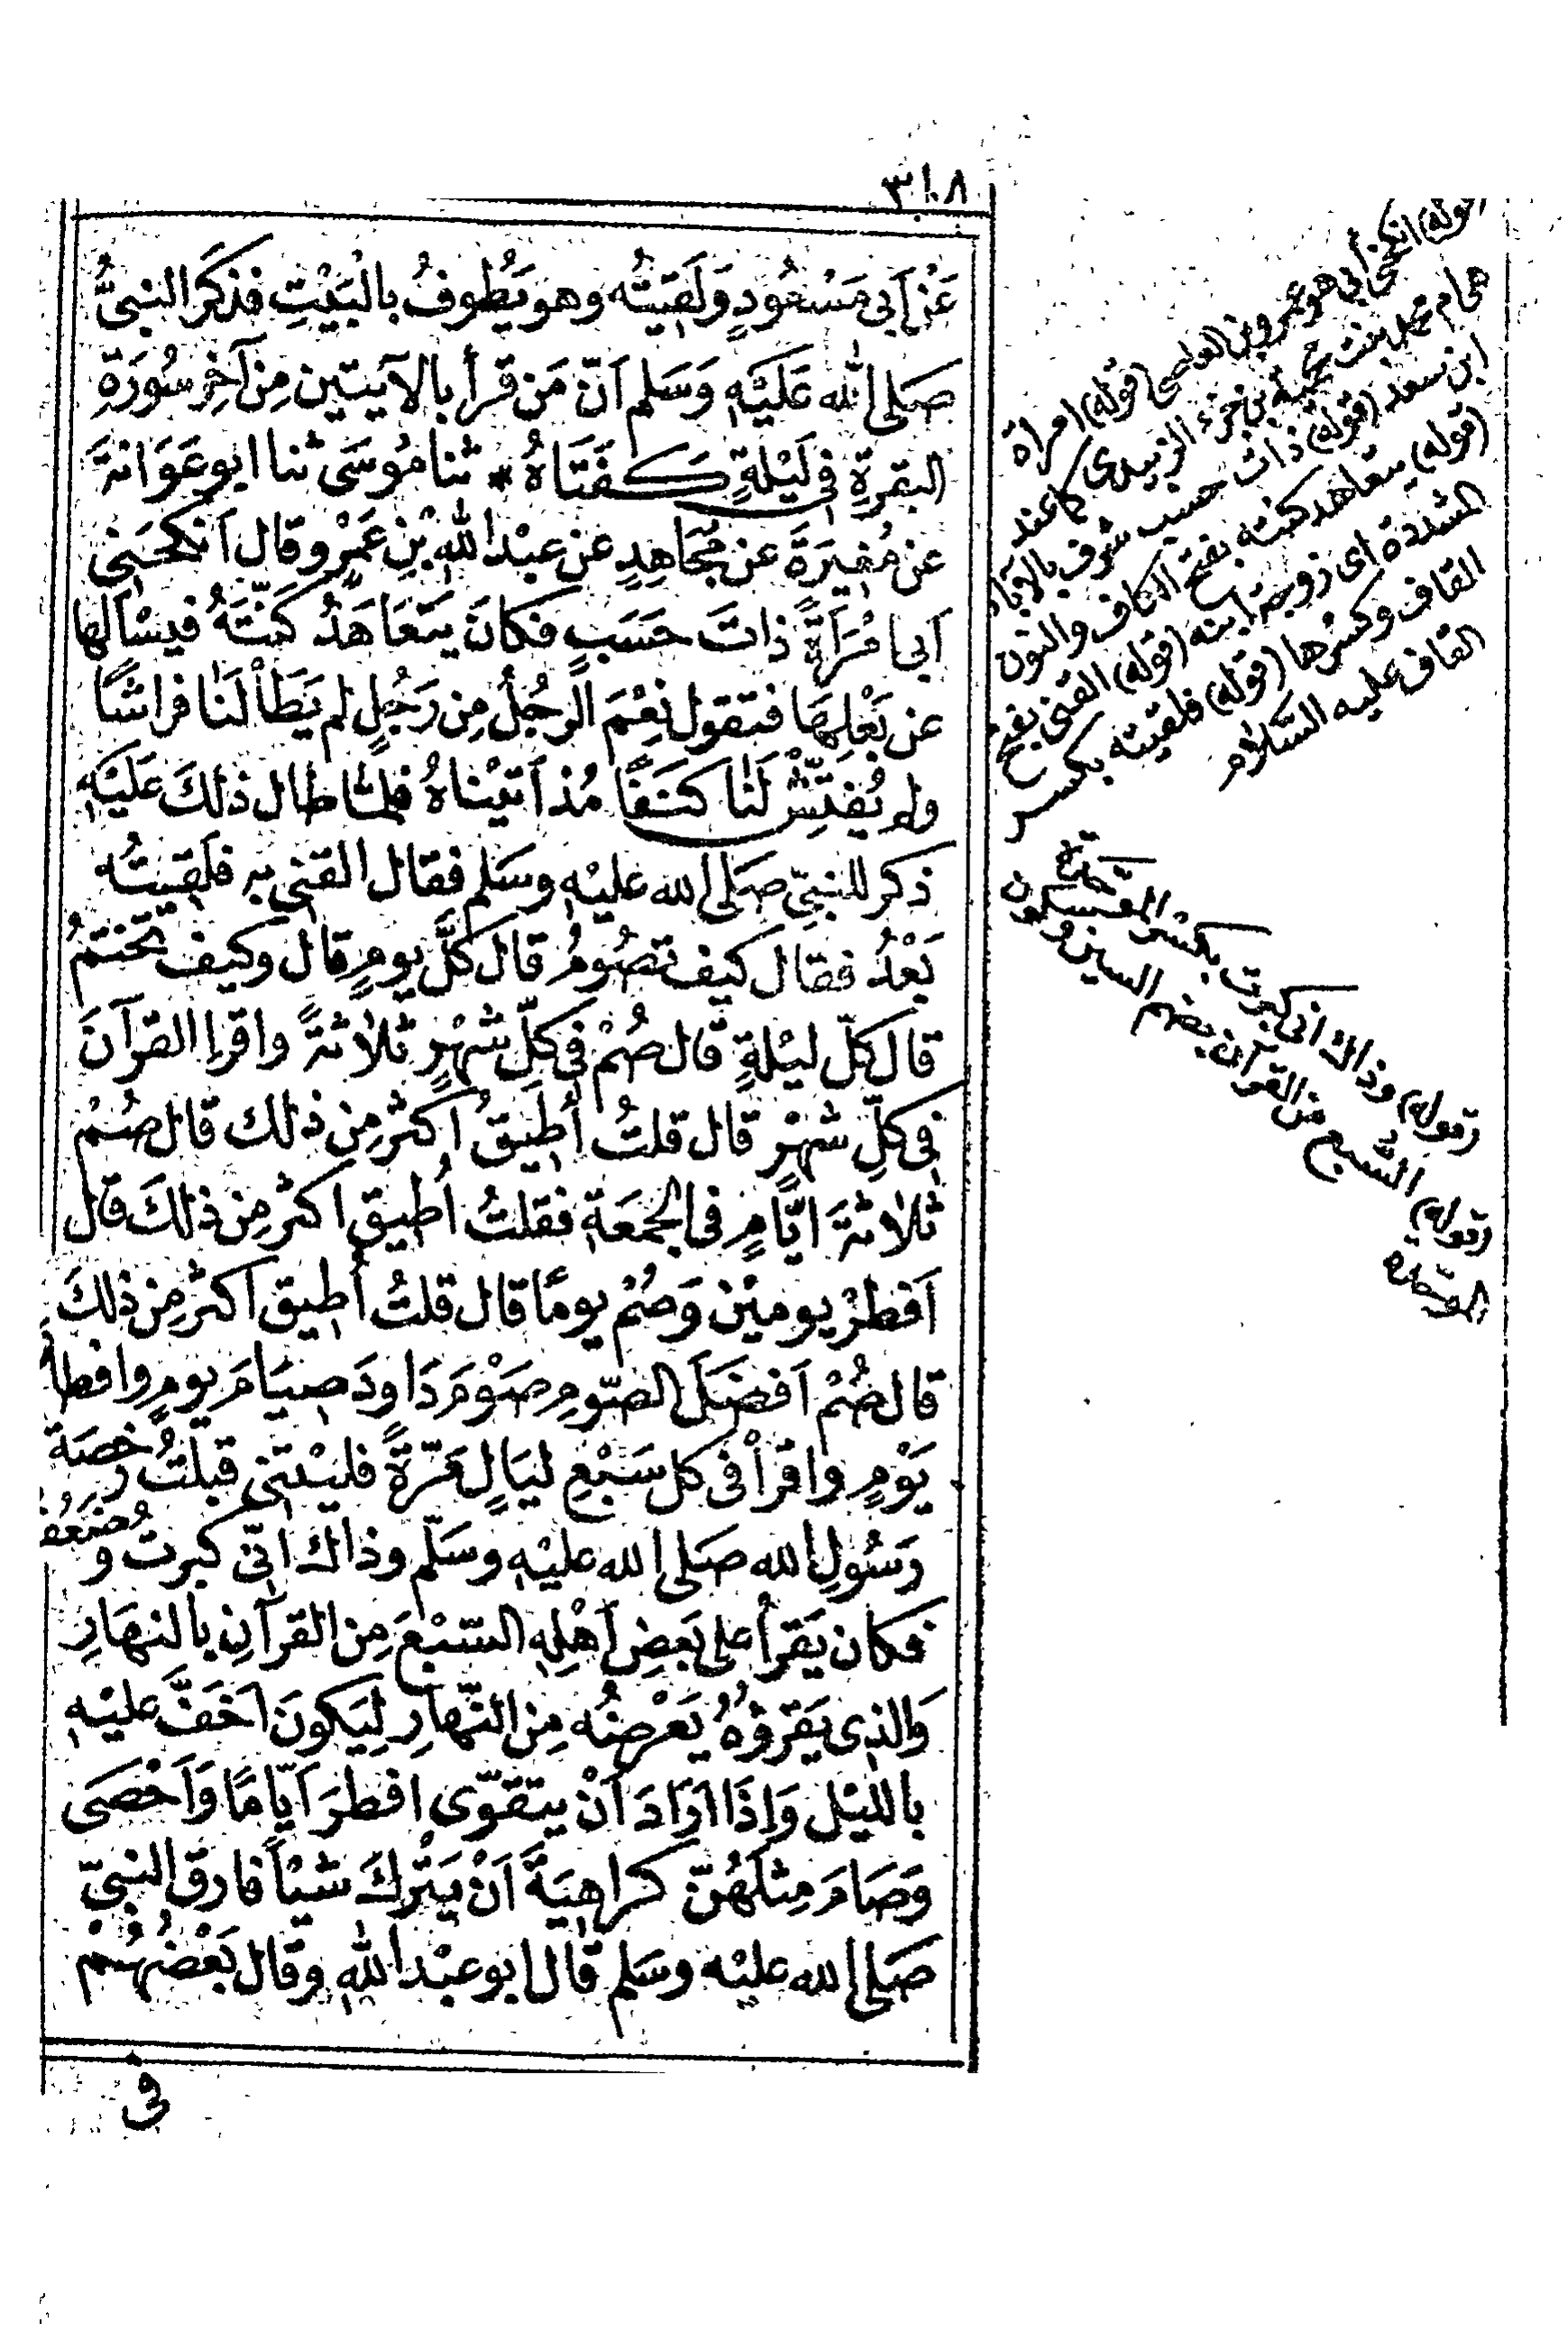 ٣١٨
عَنْ اَبِى مَسْعُودٍ وَلَقِيتُه وهو يَطُوفُ بالْبَيْتِ فذكَرَ النبىُّ
صَلى الله عَلَيْهِ وَسَلم اَنّ مَن قرأ بالآيتين مِن آخِرِ سُورَةِ
البقرةِ فى لَيْلةٍ كَفَتَاهُ * ثنا مُوسَى ثنا ابو عَوَانةَ
عن مُغِيرَةَ عن مُجَاهِدٍ عن عبْد اللهِ بْنِ عَمْرٍو قال اَنكحَنِى
اَبى امْرَاَةً ذاتَ حسَبٍ فكانَ يتَعَاهَدُ كَنّتَهُ فيسْاَلها
عن بَعْلِهَا فتقول نِعْمَ الرّجُلُ مِن رَجُلٍ لم يَطَأْ لَنَا فراشًا
ولم يُفَتِّشْ لَنَا كنَفًا مُذ اَتيْناهُ فلمّا طال ذلكَ عَلَيْهِ
ذكر للنبىّ صَلى الله عليْهِ وسَلم فقال القَنِى بِهِ فلَقِيتُه
بَعْدُ فقال كيف تصُومُ قال كلَّ يومٍ قال وكيف تَختمُ
قال كلّ ليْلةٍ قال صُمْ فى كلّ شهْرٍ ثلاثةً واقرإ القرآنَ
فى كلّ شهْرٍ قال قلتُ اُطِيقُ اكثرَ مِن ذلك قال صُمْ
ثلاثةَ ايّامٍ فى الجمُعَةِ فقلتُ اُطيق اكثرَ مِن ذلكَ قال
اَفطرْ يوميْن وَصُمْ يومًا قال قلتُ اُطيق اكثرَ مِن ذلكَ
قال صُمْ اَفضَلَ الصّومِ صَوْمَ دَاودَ صِيَامَ يومٍ وافطارَ
يَوْمٍ واقرأْ فى كل سَبْعِ ليَالٍ مَرّةً فليْتنى قبلتُ رُخصَةَ
رَسُولِ الله صَلى الله عليْهِ وسَلّم وذاك انّى كبرت وضَعُفْتُ
فكان يَقرأُ على بَعضِ اَهْلِهِ السّبْعَ مِن القرآنِ بالنهَارِ
وَالذى يَقرؤهُ يَعْرِضُه مِن النّهارِ لِيَكونَ اَخَفَّ عليْهِ
بالليْل وَاِذَا اَرَادَ اَنْ يتقوّى افطرَ اَيّامًا وَاَحْصَى
وَصَامَ مِثلَهُنّ كراهِيَةَ اَنْ يَتْركَ شيْأً فارق النبىّ
صَلى الله عليْه وسَلم قال ابو عبْد اللهِ وقال بَعْضُهُمْ
فى
(قوله) انكحنى أبى هو عمرو بن العاصى (قوله) امرأة
هى ام محمد بنت محمية بن جزء الزبيدى كما عند
ابن سعد (قوله) ذات حسب شرف بالآباء
(قوله) يتعاهد كنته بفتح الكاف والنون
المشددة اى زوجة ابنه (قوله) القنى بفتح
القاف وكسرها (قوله) فلقيته بكسر
القاف عليه السّلام
(قوله) وذاك انى كبرت بكسر الموحّدة
(قوله) السّبع من القرآن بضم السين وسكون
الموحّدة